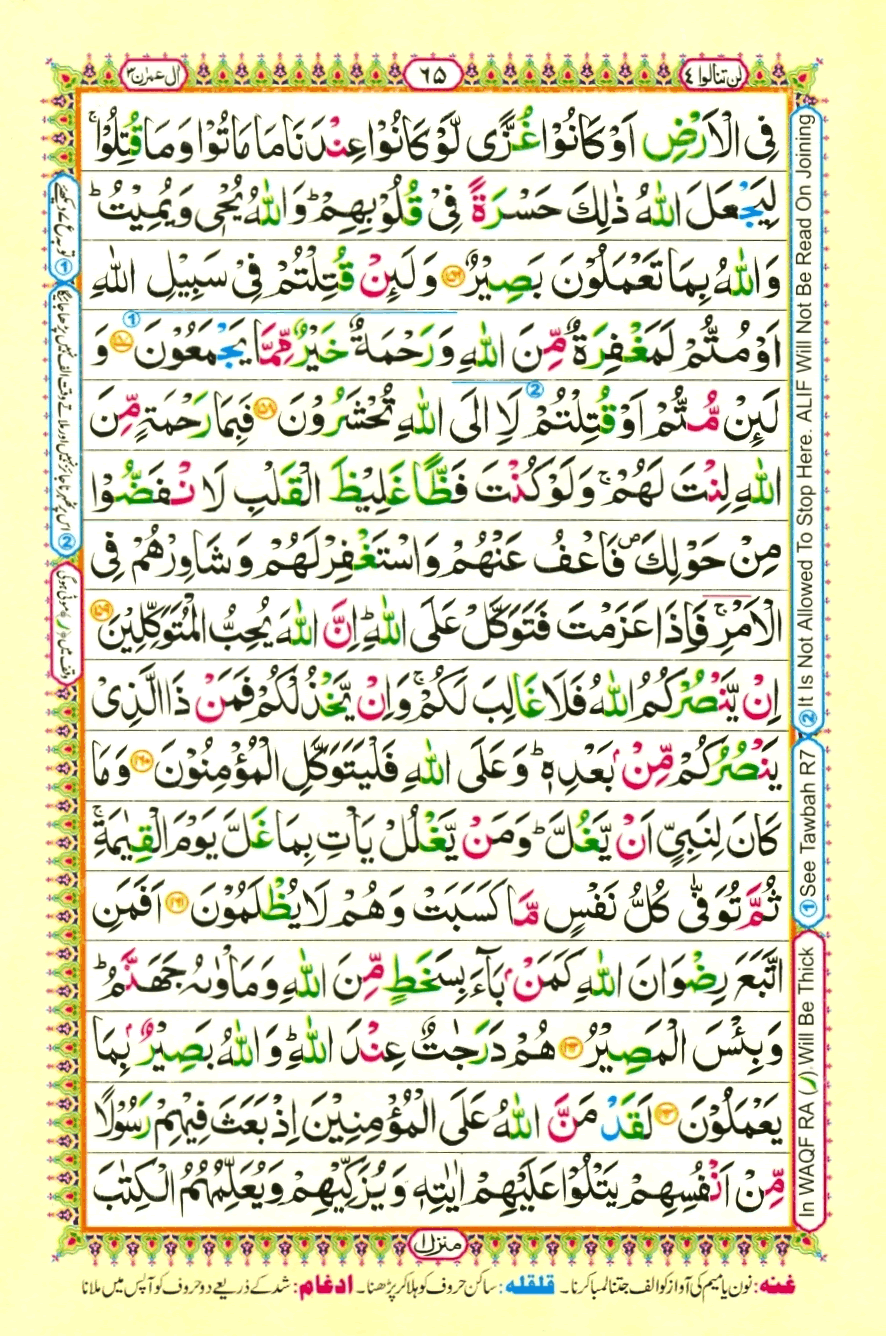 لن تنالوا ٤
٦٥
اٰل عمرٰن ٣
فِی الْاَرْضِ اَوْ كَانُوْا غُزًّی لَّوْ كَانُوْا عِنْدَنَا مَا مَاتُوْا وَمَا قُتِلُوْا ۚ
لِیَجْعَلَ اللّٰهُ ذٰلِكَ حَسْرَةً فِیْ قُلُوْبِهِمْ ؕ وَاللّٰهُ یُحْیٖ وَیُمِیْتُ ؕ
وَاللّٰهُ بِمَا تَعْمَلُوْنَ بَصِیْرٌ ﴿۱۵۶﴾ وَلَىِٕنْ قُتِلْتُمْ فِیْ سَبِیْلِ اللّٰهِ
اَوْ مُتُّمْ لَمَغْفِرَةٌ مِّنَ اللّٰهِ وَرَحْمَةٌ خَیْرٌ مِّمَّا یَجْمَعُوْنَ ﴿۱۵۷﴾ وَ
لَىِٕنْ مُّتُّمْ اَوْ قُتِلْتُمْ لَا۟اِلَی اللّٰهِ تُحْشَرُوْنَ ﴿۱۵۸﴾ فَبِمَا رَحْمَةٍ مِّنَ
اللّٰهِ لِنْتَ لَهُمْ ۚ وَلَوْ كُنْتَ فَظًّا غَلِیْظَ الْقَلْبِ لَا نْفَضُّوْا
مِنْ حَوْلِكَ ۪ فَاعْفُ عَنْهُمْ وَاسْتَغْفِرْ لَهُمْ وَشَاوِرْهُمْ فِی
الْاَمْرِ ۚ فَاِذَا عَزَمْتَ فَتَوَكَّلْ عَلَی اللّٰهِ ؕ اِنَّ اللّٰهَ یُحِبُّ الْمُتَوَكِّلِیْنَ ﴿۱۵۹﴾
اِنْ یَّنْصُرْكُمُ اللّٰهُ فَلَا غَالِبَ لَكُمْ ۚ وَاِنْ یَّخْذُلْكُمْ فَمَنْ ذَا الَّذِیْ
یَنْصُرُكُمْ مِّنْۢ بَعْدِهٖ ؕ وَعَلَی اللّٰهِ فَلْیَتَوَكَّلِ الْمُؤْمِنُوْنَ ﴿۱۶۰﴾ وَمَا
كَانَ لِنَبِیٍّ اَنْ یَّغُلَّ ؕ وَمَنْ یَّغْلُلْ یَاْتِ بِمَا غَلَّ یَوْمَ الْقِیٰمَةِ ۚ
ثُمَّ تُوَفّٰی كُلُّ نَفْسٍ مَّا كَسَبَتْ وَهُمْ لَا یُظْلَمُوْنَ ﴿۱۶۱﴾ اَفَمَنِ
اتَّبَعَ رِضْوَانَ اللّٰهِ كَمَنْۢ بَآءَ بِسَخَطٍ مِّنَ اللّٰهِ وَمَاْوٰىهُ جَهَنَّمُ ؕ
وَبِئْسَ الْمَصِیْرُ ﴿۱۶۲﴾ هُمْ دَرَجٰتٌ عِنْدَ اللّٰهِ ؕ وَاللّٰهُ بَصِیْرٌۢ بِمَا
یَعْمَلُوْنَ ﴿۱۶۳﴾ لَقَدْ مَنَّ اللّٰهُ عَلَی الْمُؤْمِنِیْنَ اِذْ بَعَثَ فِیْهِمْ رَسُوْلًا
مِّنْ اَنْفُسِهِمْ یَتْلُوْا عَلَیْهِمْ اٰیٰتِهٖ وَیُزَكِّیْهِمْ وَیُعَلِّمُهُمُ الْكِتٰبَ
② It Is Not Allowed To Stop Here. ALIF Will Not Be Read On Joining
① See Tawbah R7
In WAQF RA (ر) Will Be Thick
① توبہ رع ۷ دیکھئے
② اس پر ٹھہرنا جائز نہیں اور ملاتے وقت الف نہیں پڑھا جائیگا
وقف میں (ر) موٹی ہوگی
منزل ١
غنہ: نون یا میم کی آواز کو الف جتنا لمبا کرنا۔ قلقلہ: ساکن حروف کو ہلا کر پڑھنا۔ ادغام: شد کے ذریعے دو حروف کو آپس میں ملانا